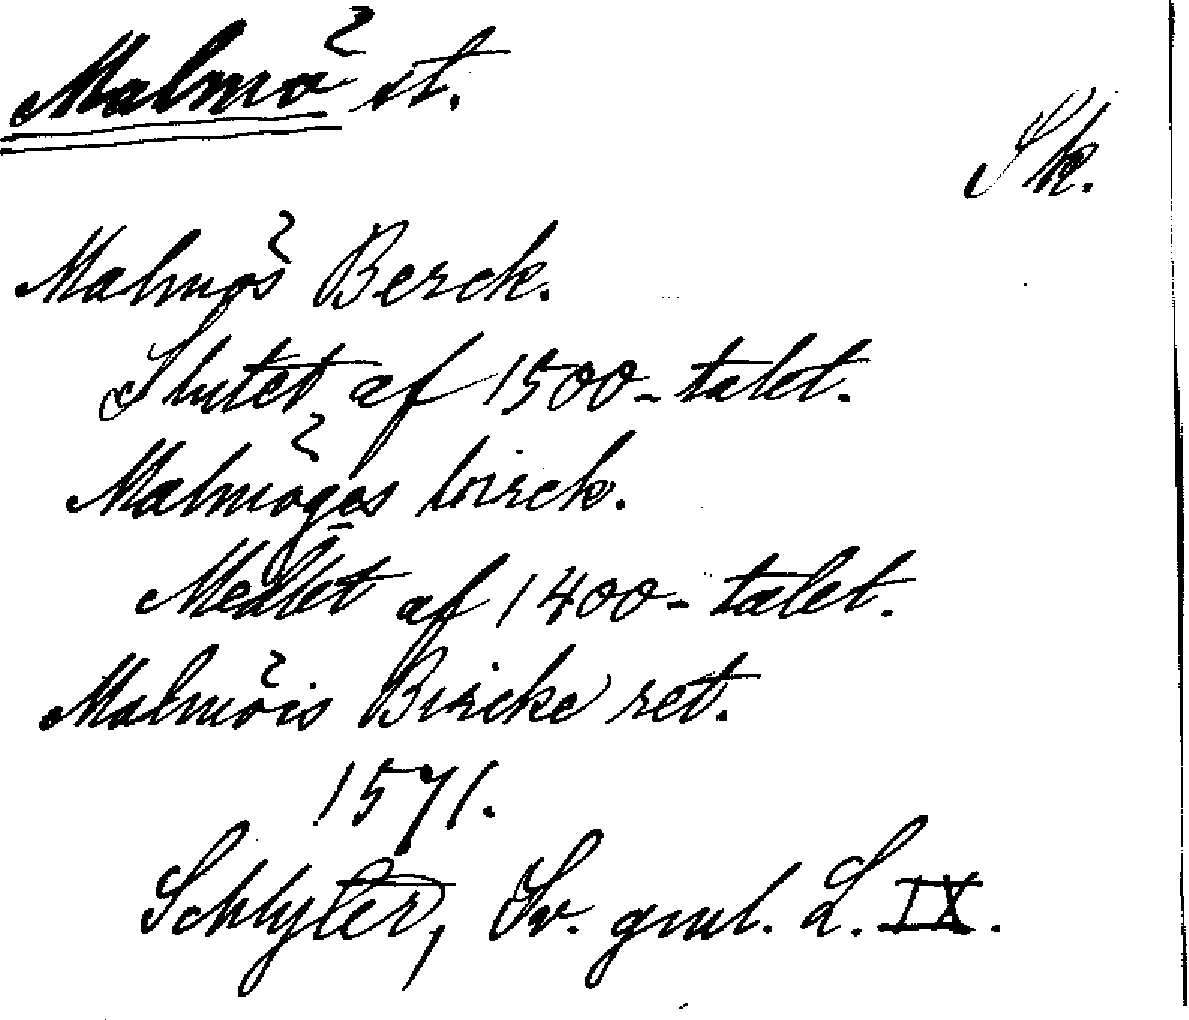 Malmö st.
Sk.
Malmös Berck.
Slutet af 1500-talet.
Malmöges birck.
Medlet af 1400-talet.
Malmöis Bircke ret.
1571.
Schlyter, Sv. gml. L. IX.